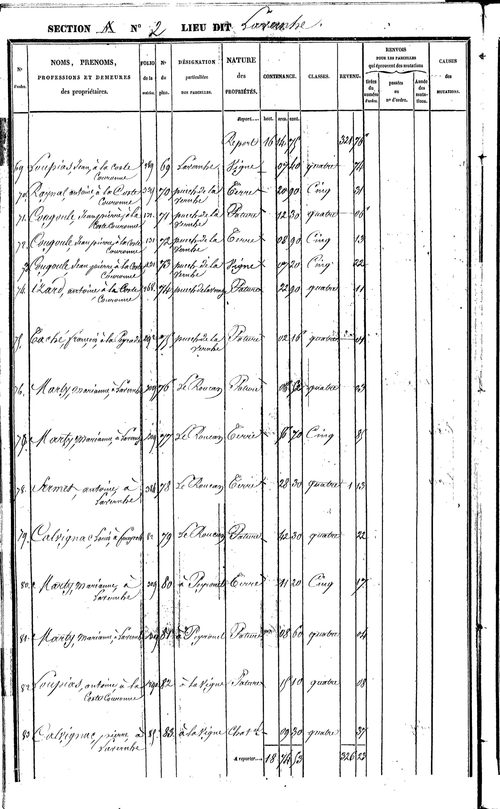 SECTION A N° 2 LIEU DIT Lavernhe.
N° d'ordre.
NOMS, PRENOMS, PROFESSIONS ET DEMEURES des propriétaires.
FOLIO de la matrice.
N° du plan.
DÉSIGNATION particulière DES PARCELLES.
NATURE des PROPRIÉTÉS.
CONTENANCE.
CLASSES.
REVENU.
RENVOIS POUR LES PARCELLES qui éprouvent des mutations
CAUSES des MUTATIONS.
hect. ares cent.
Report
Report 16 14 75 321 76
69. Loupias Jean, à la Coste Couronne 69 Lavernhe Vigne 07 60 quatre 74
70. Raynal, antoine, à la Coste Couronne 70 puech de la Vernhe Terre 20 90 Cinq 31
71. Cougoule Jean pierre, à la Coste Couronne 131 71 puech de la Vernhe Pature 12 30 quatre 06
72. Cougoule, Jean pierre, à la Coste Couronne 131 72 puech de la Vernhe Terre 08 90 Cinq 13
73. Cougoule Jean pierre, à la Coste Couronne 131 73 puech de la Vernhe Vigne 07 20 Cinq 22
74. Izard, antoine à la Coste Couronne 74 Pature 22 90 quatre 11
75. françois, à la 75 puech de la Vernhe Pature 02 16 quatre 01
76. Marty, marianne, à Lavernhe 209 76 Le Roucan Pature 08 quatre 03
77. Marty, marianne, à Lavernhe 209 77 Le Roucan Terre 70 Cinq 85
78. Fermet, antoine, à Lavernhe 78 Le Roucan Terre 28 30 quatre 1 13
79. Calvignac Louis, à 82 79 Le Roucan Pature 42 30 quatre 22
80. Marty, marianne, à Lavernhe 209 80 à Peyrouel Terre 11 20 Cinq 17
81. Marty, marianne, à Lavernhe 209 81 à Peyrouel Pature 08 60 quatre 04
82. Loupias, antoine, à la Coste Couronne 82 à la Vigne Pature 15 10 quatre 08
83. Calvignac, pierre, à Lavernhe 83 à la Vigne 09 30 quatre 37
A reporter 18 74 53 326 23